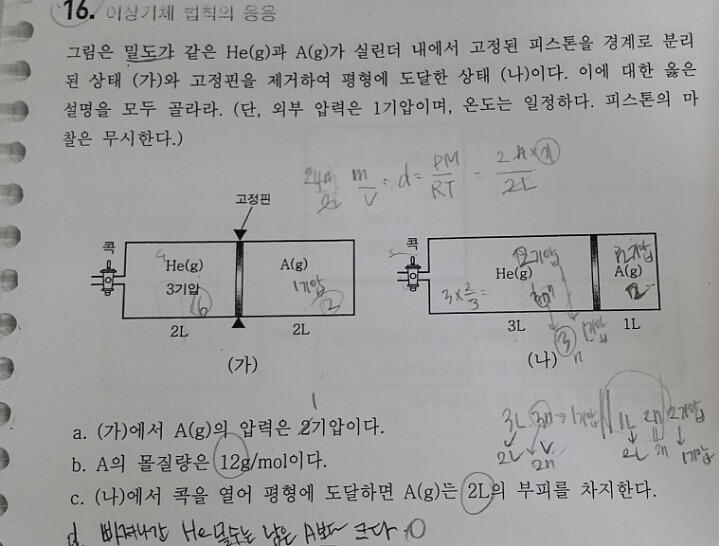 16. 이상기체 법칙의 응용
그림은 밀도가 같은 He(g)과 A(g)가 실린더 내에서 고정된 피스톤을 경계로 분리
된 상태 (가)와 고정핀을 제거하여 평형에 도달한 상태 (나)이다. 이에 대한 옳은
설명을 모두 골라라. (단, 외부 압력은 1기압이며, 온도는 일정하다. 피스톤의 마
찰은 무시한다.)
m/V = d = PM/RT =
고정핀
콕
He(g)
3기압
6
A(g)
1기압
2
2L
2L
(가)
콕
He(g)
3×2/3=
A(g)
3L
1L
3
n
(나)
3L 3n → 1기압
1L 2n 2기압
2L 2n
2L 2n 1기압
1
a. (가)에서 A(g)의 압력은 2기압이다.
b. A의 몰질량은 12g/mol이다.
c. (나)에서 콕을 열어 평형에 도달하면 A(g)는 2L의 부피를 차지한다.
d. 빠져나간 He 몰수는 남은 A보다 크다. O